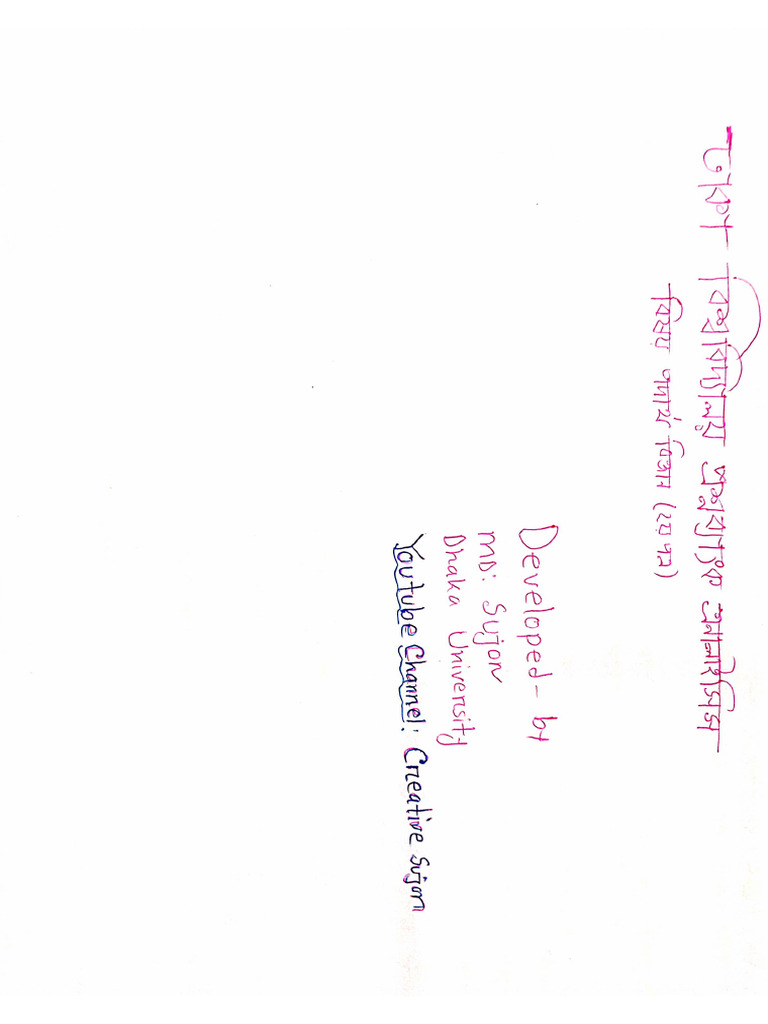 ঢাকা বিশ্ববিদ্যালয় প্রশ্নব্যাংক এনালাইসিস
বিষয়ঃ পদার্থ বিজ্ঞান (২য় পত্র)
Developed-by
MD: Sujon
Dhaka University
Youtube Channel: Creative Sujon